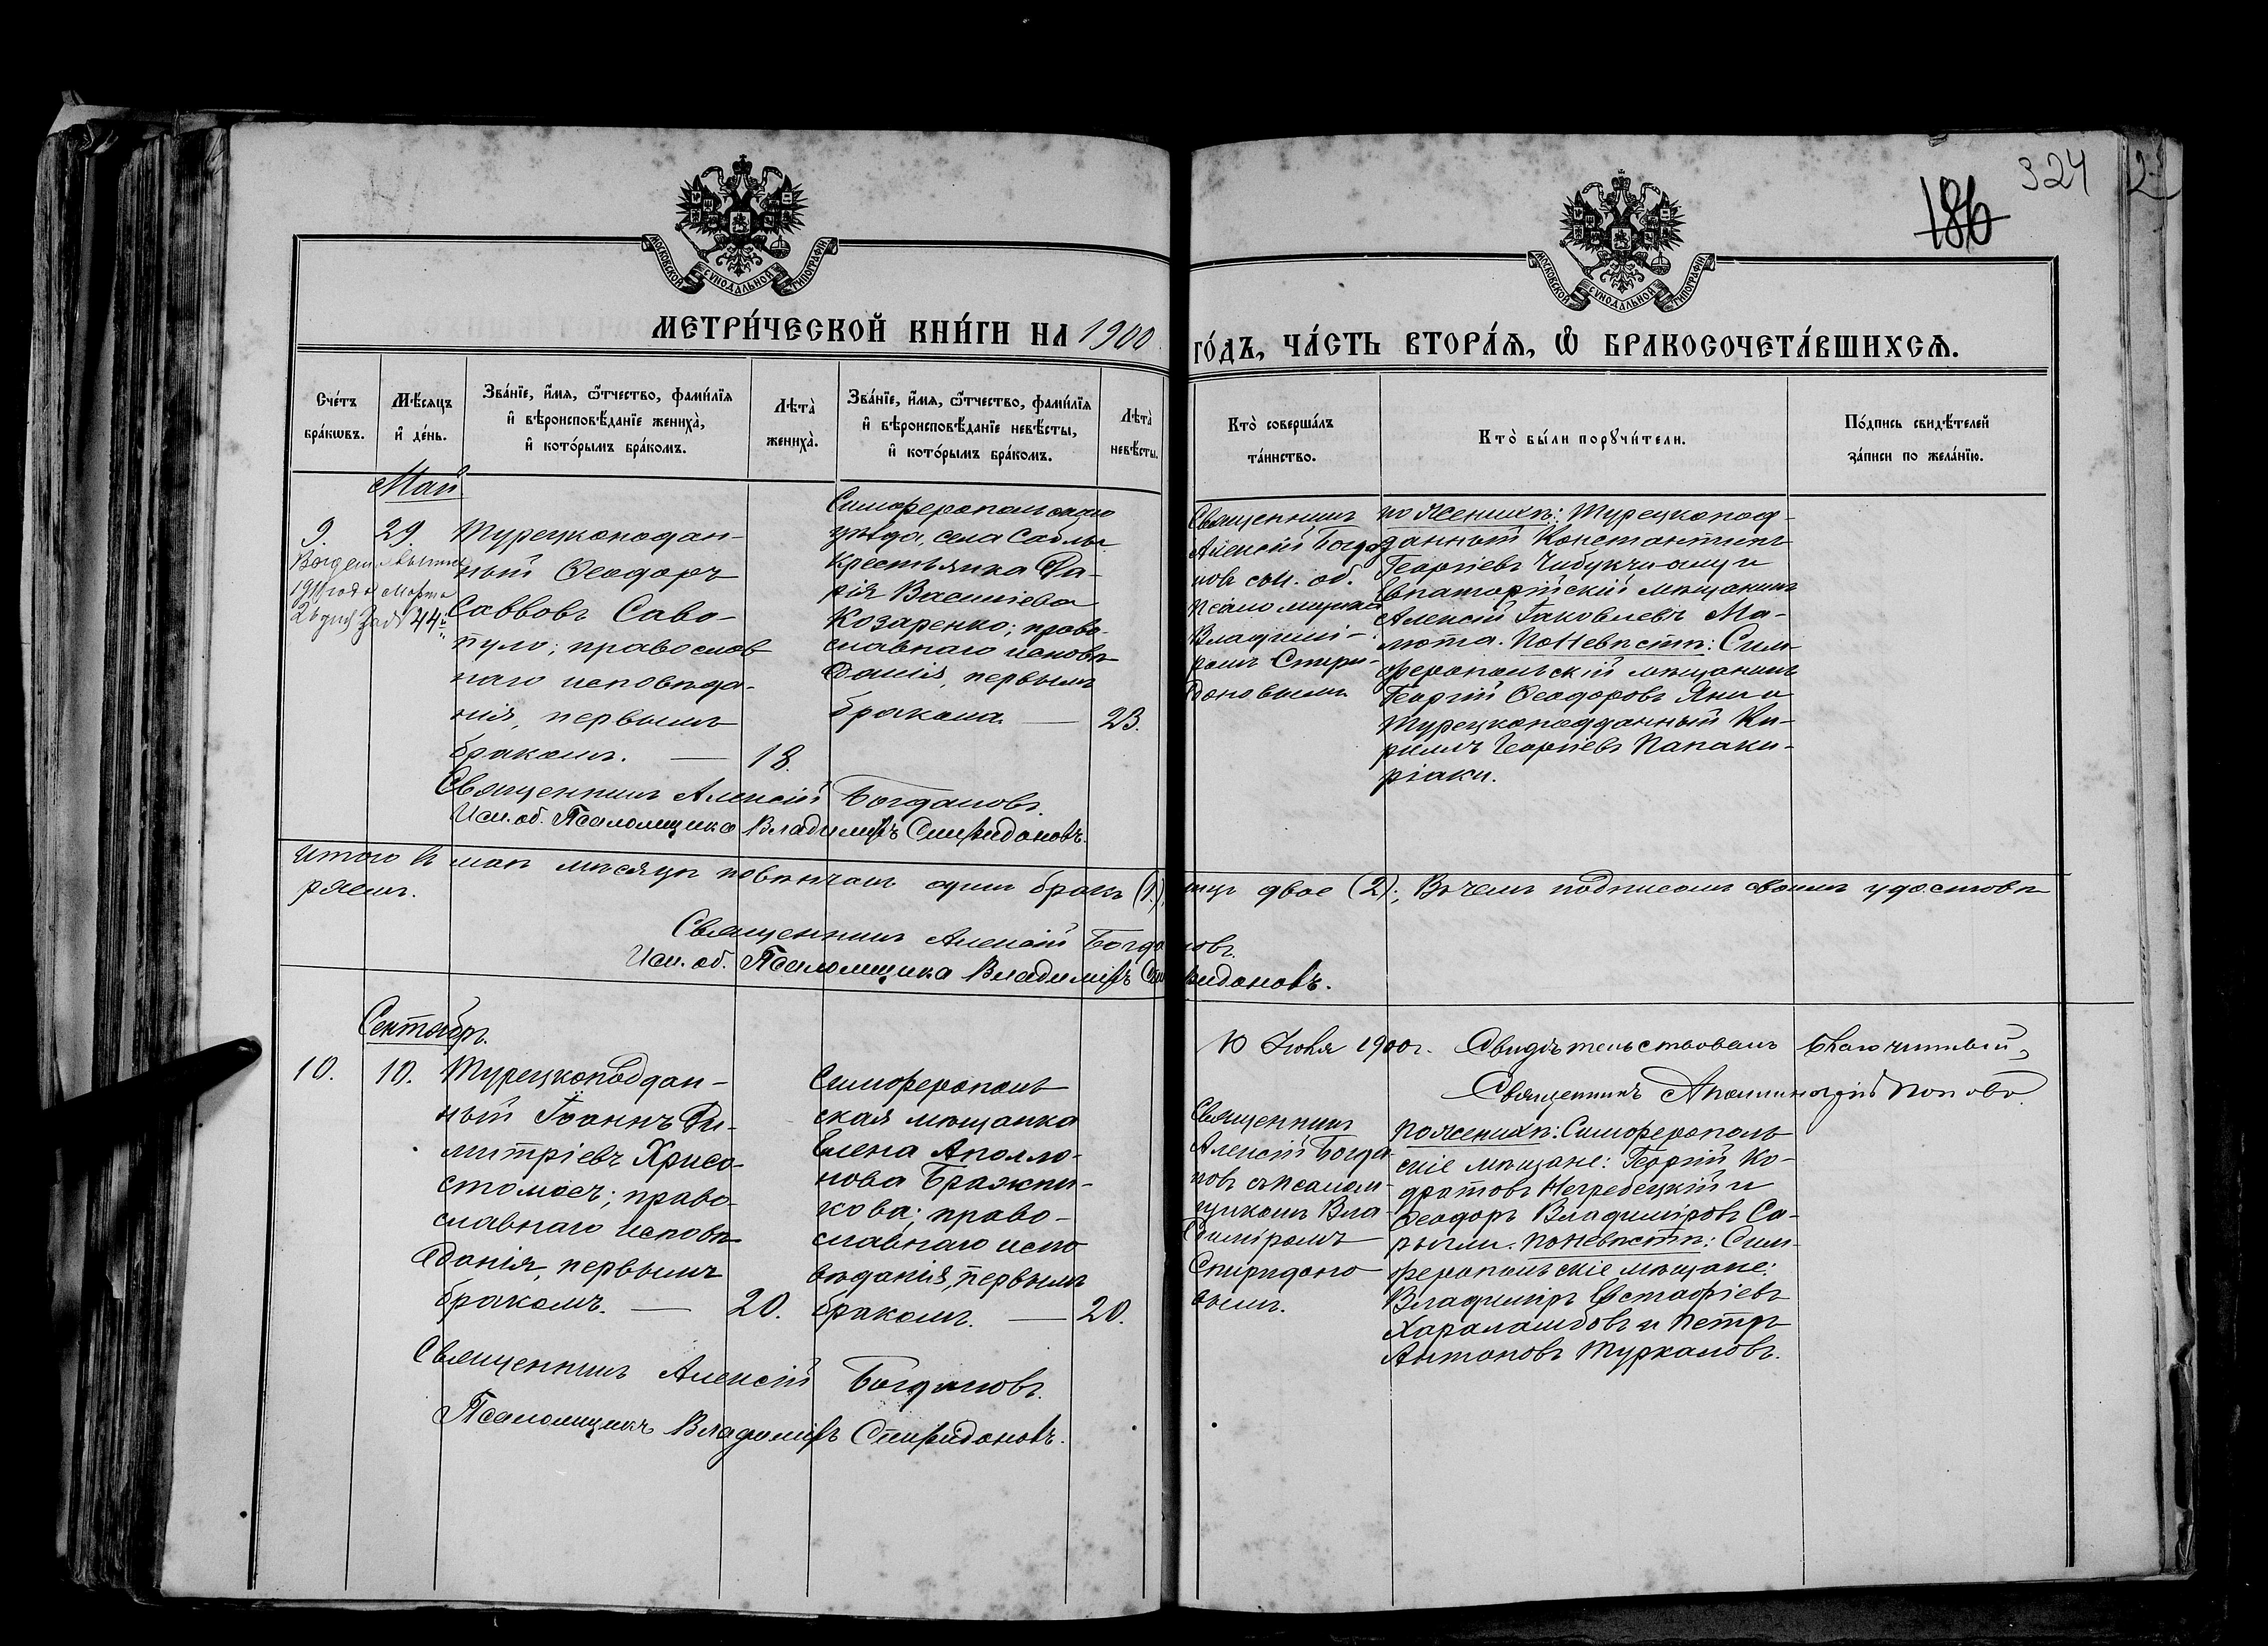 324
186
2
МОСКОВСКОЙ СѴНОДАЛЬНОЙ ТИПОГРАФІИ
МОСКОВСКОЙ СѴНОДАЛЬНОЙ ТИПОГРАФІИ
МЕТРИ́ЧЕСКОЙ КНИ́ГИ НА 1900 ГО́ДЪ, ЧА́СТЬ ВТОРА́Ѧ, Ѡ БРАКОСОЧЕТА́ВШИХСѦ.
Сче́тъ
бра́кѡвъ.
Мѣ́сяцъ
и҆ де́нь.
Зва́нїе, и҆́мѧ, ѻ҆́тчество, фами́лїѧ
и҆ вѣроисповѣ́данїе жениха̀,
и҆ кото́рымъ бра́комъ.
Лѣта̀
жениха̀.
Зва́нїе, и҆́мѧ, ѻ҆́тчество, фами́лїѧ
и҆ вѣроисповѣ́данїе невѣ́сты,
и҆ кото́рымъ бра́комъ.
Лѣта̀
невѣ́сты.
Кто̀ соверша́лъ
та́инство.
Кто̀ бы́ли порꙋчи́тели.
По́дпись свидѣ́телей
за́писи по жела́нїю.
Май
9.
29.
1911 года Марта
2 дня за № 44
Турецкоподан-
ный Ѳеодоръ
Саввовъ Саво-
пуло; православ
наго исповѣда-
нія, первымъ
бракомъ. — 18.
Симферопольскаго
уѣзда, села Саблы
крестьянка Да-
рія Васильева
Козаренко; право-
славнаго исповѣ
данія, первымъ
бракомъ. — 23.
Священникъ
Алексій Богда
новъ съ И. об.
псаломщика
Владимі-
ромъ Спири-
доновымъ
по женихѣ: Турецкопод-
данный Константинъ
Георгіевъ Чибукчи-оглу и
Евпаторійскій мѣщанинъ
Алексій Іаковлевъ Ма-
мота. По Невѣстѣ: Сим-
феропольскій мѣщанинъ
Георгій Ѳеодоровъ Яни и
Турецкоподданный Ки-
риллъ Георгіевъ Папаки-
ріаки.
Священникъ Алексій Богдановъ.
Исп. об. Псаломщика Владиміръ Спиридоновъ.
Итого въ маѣ мѣсяцѣ повѣнчанъ одинъ бракъ (1.), лицъ двое (2); Въ чемъ подписомъ своимъ удостовѣ
ряемъ.
Священникъ Алексій Богдановъ.
Исп. об. Псаломщика Владиміръ Спиридоновъ.
10 Іюня 1900 г. Свидѣтельствовалъ Благочинный,
Священникъ Аполлинарій Поповъ.
Сентябрь.
10.
10.
Турецкоподдан-
ный Іоаннъ Ди-
митріевъ Хрисо-
стомосъ; право-
славнаго исповѣ
данія, первымъ
бракомъ. — 20.
Симферополь
ская мѣщанка
Елена Аполло-
нова Бражни-
кова; право-
славнаго испо
вѣданія, первымъ
бракомъ. — 20.
Священникъ
Алексій Богда
новъ съ псалом-
щикомъ Вла-
диміромъ
Спиридоно
вымъ.
по женихѣ: Симферополь
скіе мѣщане: Георгій Ко-
дратовъ Негребецкій и
Ѳеодоръ Владиміровъ Са-
рыгли. по Невѣстѣ: Сим-
феропольскіе мѣщане:
Владиміръ Евстафіевъ
Хараламповъ и Петръ
Антоновъ Туркаловъ.
Священникъ Алексій Богдановъ.
Псаломщикъ Владиміръ Спиридоновъ.